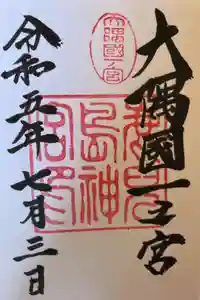 大隅國一ノ宮
大隅國一之宮
鹿兒
島神
宮
令和五年七月三日